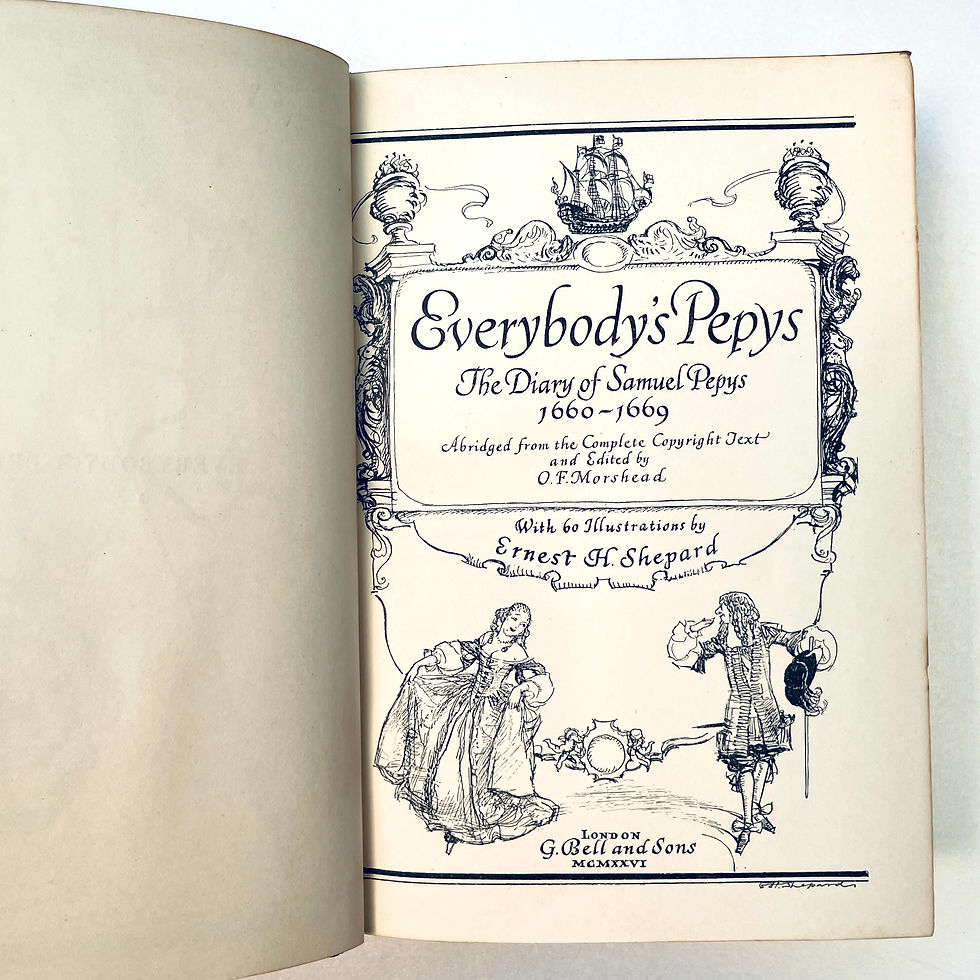 Everybody's Pepys
The Diary of Samuel Pepys
1660-1669
Abridged from the Complete Copyright Text
and Edited by
O.F. Morshead
With 60 Illustrations by
Ernest H. Shepard
LONDON
G. Bell and Sons
MCMXXVI
E.H. Shepard